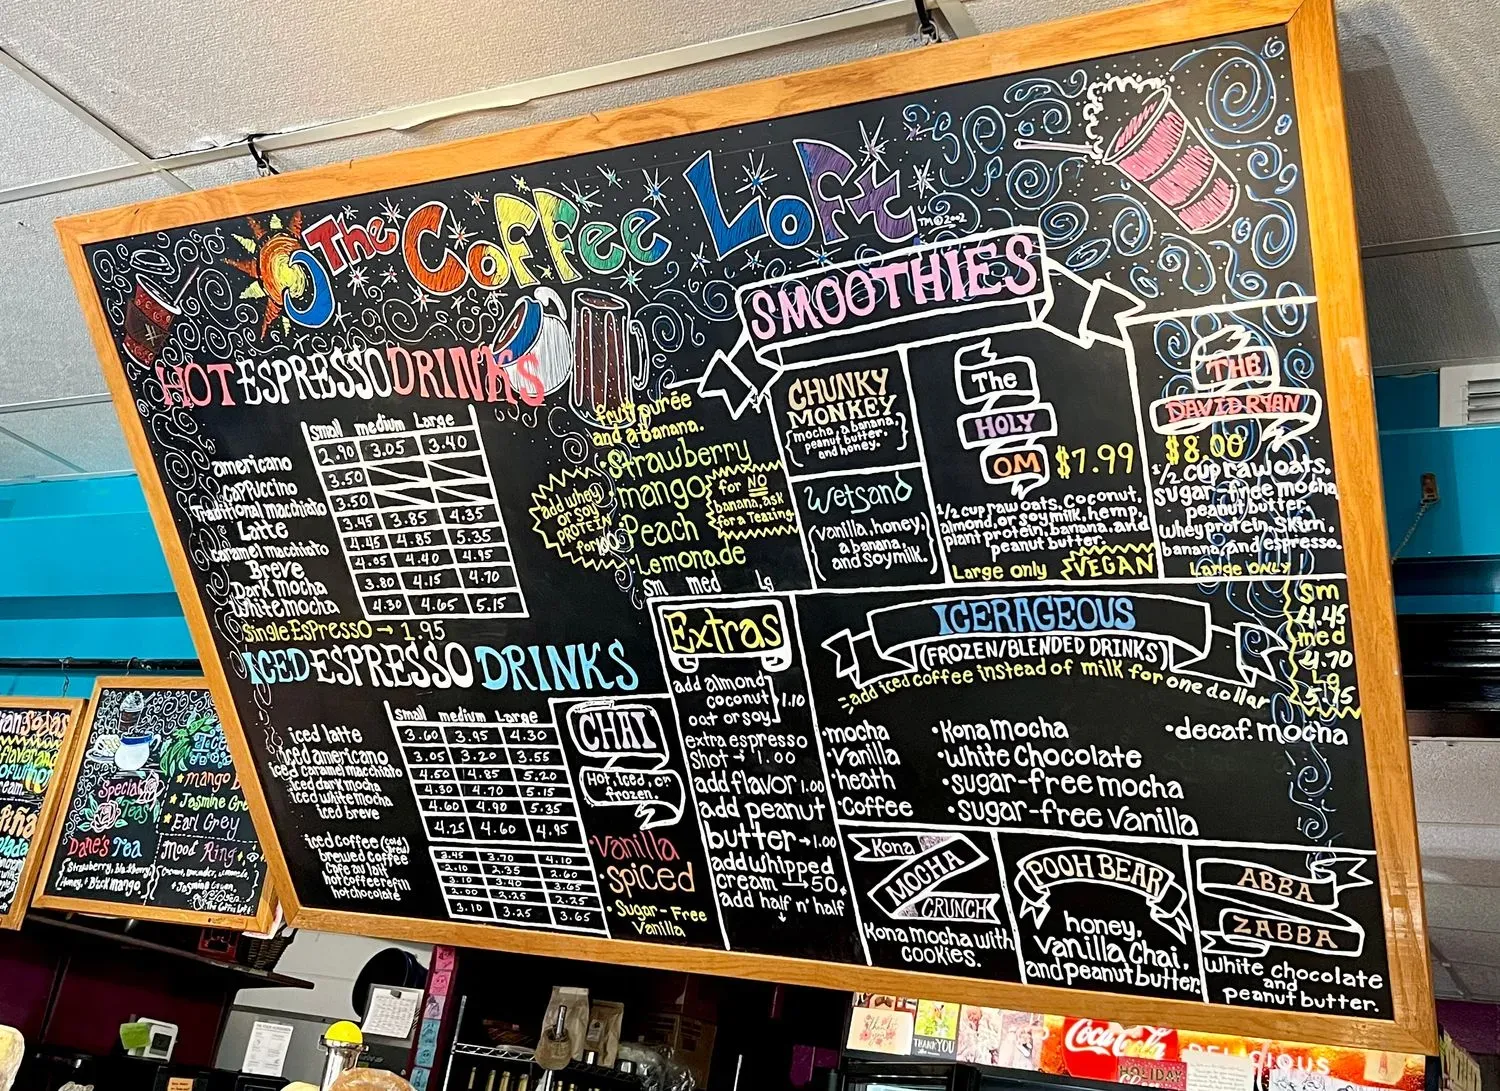 The Coffee Loft
TM © 2002
HOT ESPRESSO DRINKS
Small medium Large
americano 2.90 3.05 3.40
cappuccino 3.50
Traditional macchiato 3.50
Latte 3.45 3.85 4.35
caramel macchiato 4.45 4.85 5.35
Breve 4.05 4.40 4.95
Dark mocha 3.80 4.15 4.70
White mocha 4.30 4.65 5.15
Single Espresso → 1.95
ICED ESPRESSO DRINKS
Small medium Large
iced latte 3.60 3.95 4.30
iced americano 3.05 3.20 3.55
iced caramel macchiato 4.50 4.85 5.20
iced dark mocha 4.30 4.70 5.15
iced white mocha 4.60 4.90 5.35
iced breve 4.25 4.60 4.95
iced coffee (cold brew) 3.45 3.70 4.10
brewed coffee 2.10 2.35 2.60
cafe au lait 3.10 3.40 3.65
hot coffee refill 2.00 2.25 2.25
hot chocolate 3.10 3.25 3.65
SMOOTHIES
fruit purée
and a banana.
•Strawberry
•mango
•Peach
•Lemonade
add whey
or soy
PROTEIN
for
for NO
banana, ask
for a Teazing
sm med lg
CHUNKY
MONKEY
(mocha, a banana,
peanut butter,
and honey.)
Wetsand
(vanilla, honey,
a banana,
and soymilk.)
The
HOLY
OM $7.99
1/2 cup raw oats, coconut,
almond, or soy milk, hemp,
plant protein, banana, and
peanut butter.
Large only VEGAN
THE
DAVID RYAN
$8.00
1/2 cup raw oats,
sugar-free mocha,
peanut butter,
whey protein, skim,
banana, and espresso.
Large ONLY
CHAI
Hot, iced, or
frozen.
•Vanilla
•Spiced
•Sugar-Free
Vanilla
Extras
add almond
coconut
oat or soy 1.10
extra espresso
shot → 1.00
add flavor 1.00
add peanut
butter → 1.00
add whipped
cream → 50¢
add half n' half
ICERAGEOUS
(FROZEN/BLENDED DRINKS)
-add iced coffee instead of milk for one dollar
sm
4.45
med
4.70
Lg
5.15
•mocha
•Vanilla
•heath
•Coffee
•Kona Mocha
•White Chocolate
•sugar-free mocha
•sugar-free Vanilla
•decaf. mocha
Kona
MOCHA
CRUNCH
Kona mocha with
cookies.
POOH BEAR
honey,
vanilla chai,
and peanut butter.
ABBA
ZABBA
white chocolate
and
peanut butter.
Specialty
Teas
Dane's Tea
Strawberry, blackberry,
Honey, & Black mango,
mango
Jasmine Gre
Earl Grey
Mood Ring
Coca-Cola
DELICIOUS
THANK YOU
HOLIDAY